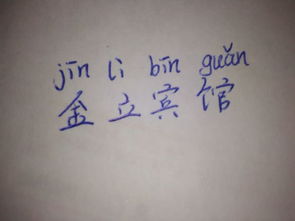 jīn lì bīn guǎn
金立宾馆